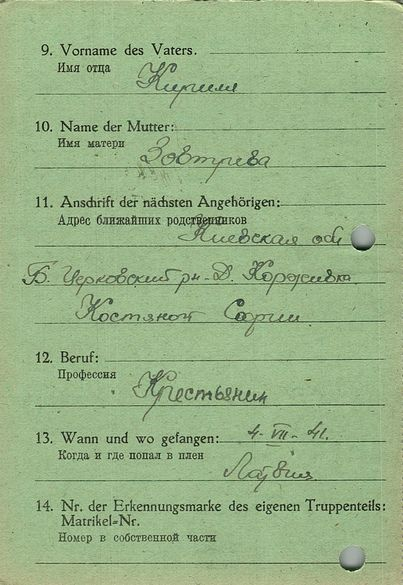 9. Vorname des Vaters.
Имя отца
Кирилл
10. Name der Mutter:
Имя матери
11. Anschrift der nächsten Angehörigen:
Адрес ближайших родственников
Киевская обл
Б. Церковский рн. Д. Корживка
Костяной Софии
12. Beruf:
Профессия
Крестьянин
13. Wann und wo gefangen: 4-VII-41.
Когда и где попал в плен
Латвия
14. Nr. der Erkennungsmarke des eigenen Truppenteils:
Matrikel-Nr.
Номер в собственной части